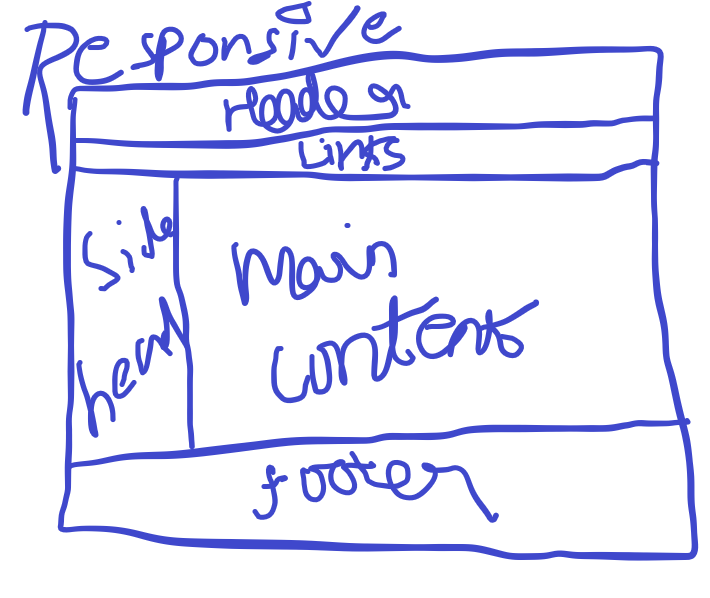 Responsive
header
Links
Side
Main
content
footer